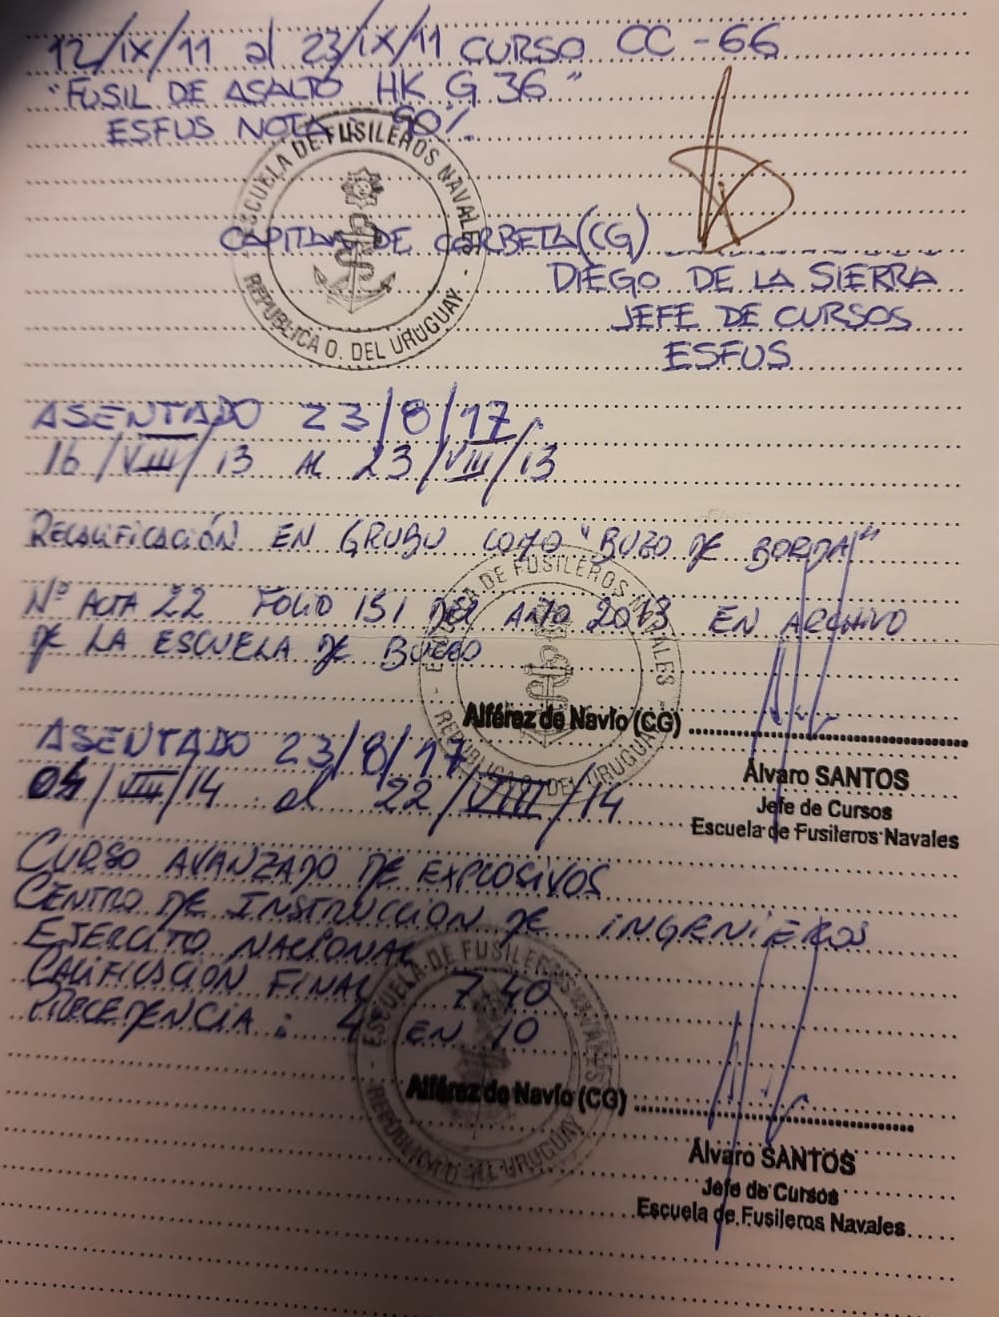 12/IX/11 al 23/IX/11 CURSO CC-66
"FUSIL DE ASALTO HK G 36"
ESFUS NOTA 90%
ESCUELA DE FUSILEROS NAVALES
REPUBLICA O. DEL URUGUAY
CAPITAN DE CORBETA (CG)
DIEGO DE LA SIERRA
JEFE DE CURSOS
ESFUS
ASENTADO 23/8/17.
16/VIII/13 AL 23/VIII/13
RECALIFICACIÓN EN GRUBU COMO "BUZO DE BORDA"
Nº ACTA 22 FOLIO 151 DEL AÑO 2013 EN ARCHIVO
DE LA ESCUELA DE BUCEO
ESCUELA DE FUSILEROS NAVALES
REPUBLICA O. DEL URUGUAY
Alférez de Navío (CG)
Álvaro SANTOS
Jefe de Cursos
Escuela de Fusileros Navales
ASENTADO 23/8/17
04/VIII/14 al 22/VIII/14
CURSO AVANZADO DE EXPLOSIVOS
CENTRO DE INSTRUCCION DE INGENIEROS
EJERCITO NACIONAL
CALIFICACION FINAL 7.40
PRECEDENCIA: 4 EN 10
ESCUELA DE FUSILEROS NAVALES
REPUBLICA O. DEL URUGUAY
Alférez de Navío (CG)
Álvaro SANTOS
Jefe de Cursos
Escuela de Fusileros Navales